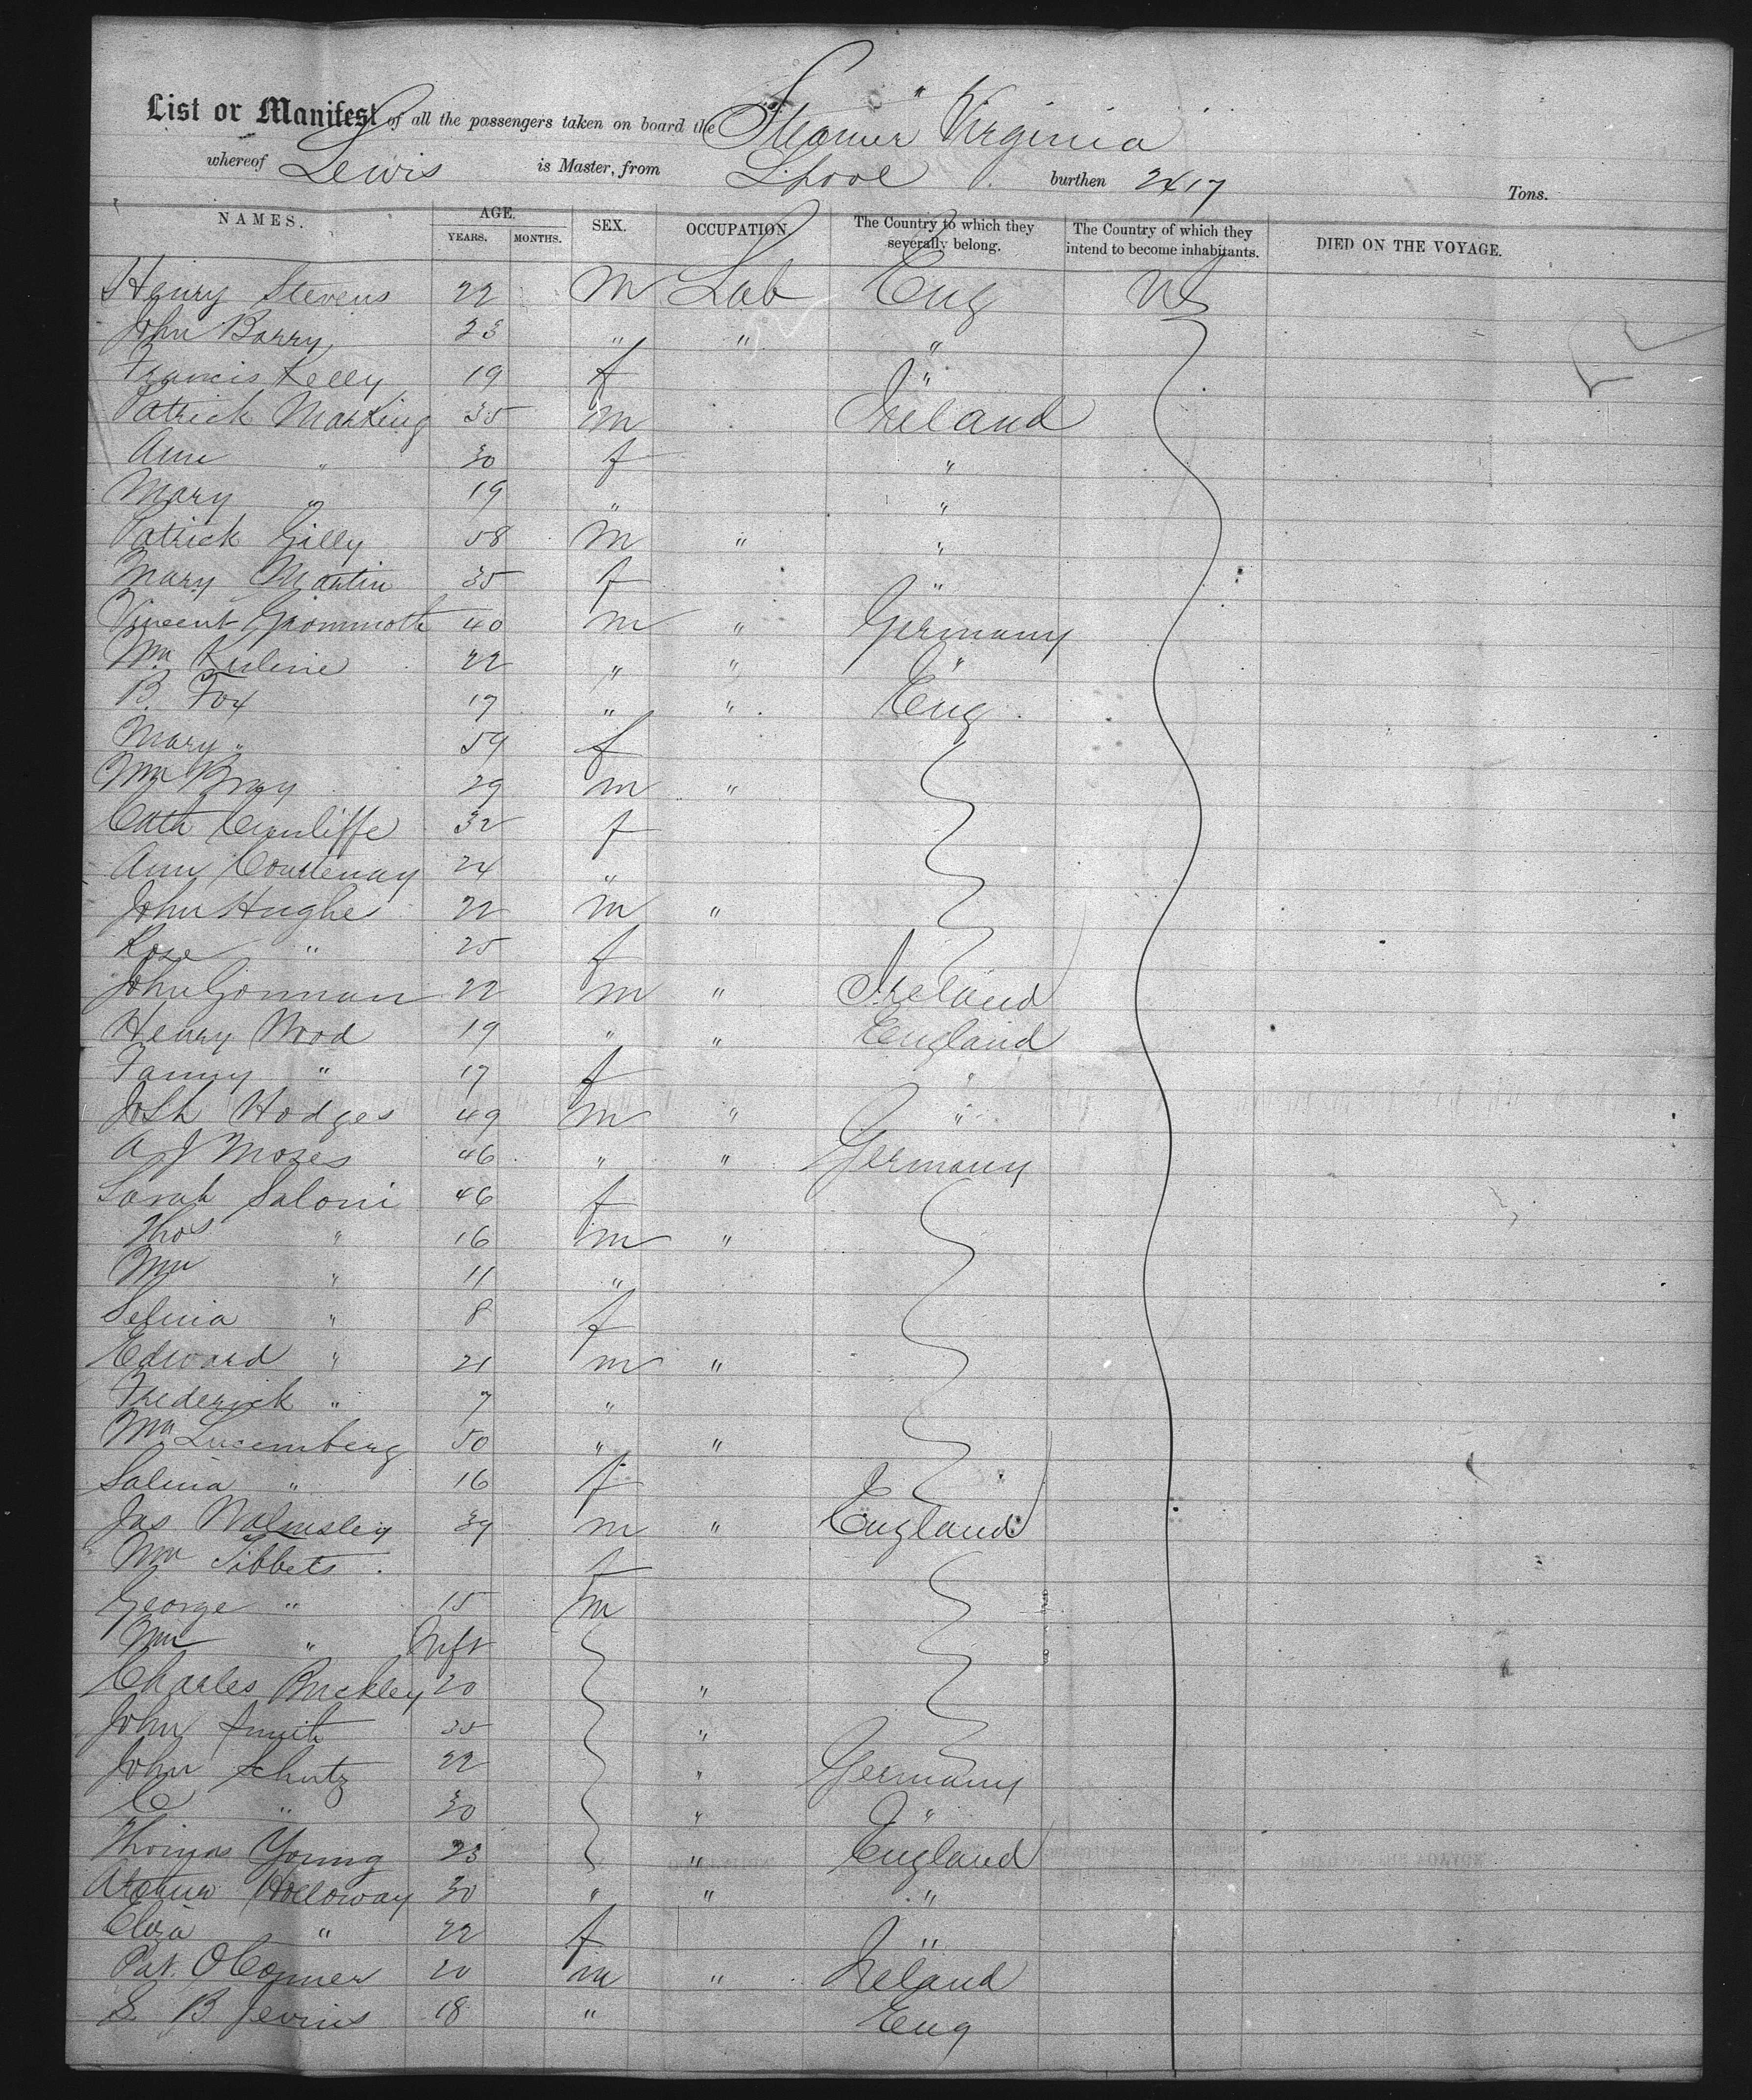 List or Manifest of all the passengers taken on board the Steamer Virginia
whereof Lewis is Master, from Lpool burthen 2417 Tons.
NAMES. AGE. YEARS. MONTHS. SEX. OCCUPATION. The Country to which they severally belong. The Country of which they intend to become inhabitants. DIED ON THE VOYAGE.
Henry Stevens 22 m Lab Eng US
John Barry 23 " " "
Francis Kelly 19 f "
Patrick Marking 35 m Ireland
Ann " 30 f "
Mary " 19 " "
Patrick Gilly 58 m " "
Mary Martin 35 f "
Vincent 40 m " Germany
Wm 22 " " "
B. Fox 17 " " Eng
Mary " 59 f
Wm Bray 29 m "
Cath Cunliffe 32 f
Ann Courtenay 24 "
John Hughes 22 m "
Rose " 25 f
John Gorman 22 m " Ireland
Henry Wood 19 " " England
Fanny " 17 f "
Josh Hodges 49 m " "
A J Moses 46 " " Germany
Sarah Salomi 46 f
Thos " 16 m "
Wm " 11 "
Selina " 8 f
Edward " 21 m "
Frederick " 7 "
Wm Luxemberg 50 " "
Salina " 16 f
Jas Walmsley 39 m " England
Tibbets f
George " 15 m
Wm " Inft
Charles Buckley 20 "
John Smith 35 "
John Schutz 22 " Germany
C " 30 " "
Thomas Young 23 " England
Holloway 30 " " "
Eliza " 22 f "
Pat. O Conner 20 m " Ireland
S. B Jevins 18 " Eng